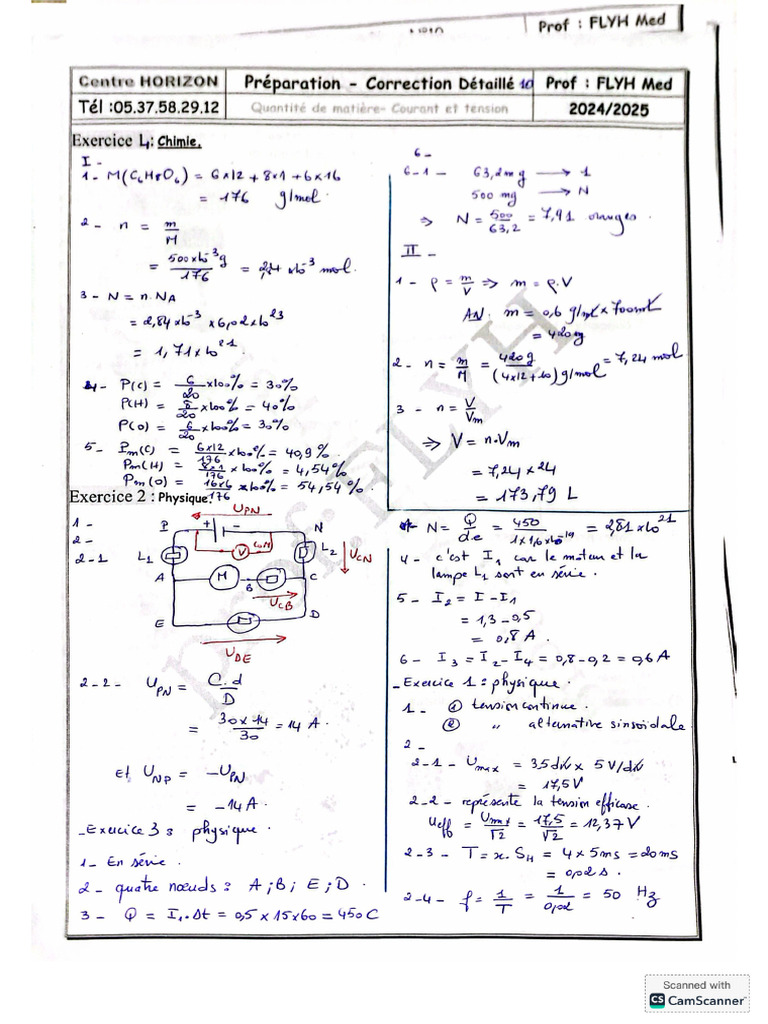 Prof : FLYH Med
Centre HORIZON
Préparation - Correction Détaillé 10
Prof : FLYH Med
Tél :05.37.58.29.12
Quantité de matière- Courant et tension
2024/2025
Exercice 4: Chimie.
I -
1- M(C6H8O6) = 6x12 + 8x1 + 6x16
= 176 g/mol.
2 - n = m/M
= 500x10^-3 g/176 = 2,84 x10^-3 mol.
3 - N = n.NA
= 2,84x10^-3 x6,02x10^23
= 1,71x10^21
4- P(C) = 6/20 x100% = 30%
P(H) = 8/20 x100% = 40%
P(O) = 6/20 x100% = 30%
5 - Pm(C) = 6x12/176 x100% = 40,9%
Pm(H) = 8x1/176 x100% = 4,54%
Pm(O) = 16x6/176 x100% = 54,54%
6 -
6-1- 63,2mg → 1
500 mg → N
⇒ N = 500/63,2 = 7,91 oranges.
II -
1 - ρ = m/V ⇒ m = ρ.V
AN. m = 0,6 g/mL x 700mL
= 420g
2 - n = m/M = 420g/(4x12+10)g/mol = 7,24 mol
3 - n = V/Vm
⇒ V = n.Vm
= 7,24 x 24
= 173,79 L
Exercice 2 : Physique.
1 -
2 -
2-1
UPN
P + - N
V COM
L1 L2 UCN
A M B C
UCB
E D
UDE
2-2- UPN = C.d/D
= 30x14/30 = 14 A.
Et UNP = -UPN
= -14A.
- Exercice 3 : physique.
1 - En série.
2 - quatre nœuds : A ; B ; E ; D.
3 - Q = I1.Δt = 0,5 x 15x60 = 450C
N = Q/de = 450/1x1,6x10^-19 = 2,81x10^21
4 - c'est I1 car le moteur et la
lampe L1 sont en série.
5 - I2 = I - I1
= 1,3 - 0,5
= 0,8 A.
6 - I3 = I2 - I4 = 0,8 - 0,2 = 0,6A
- Exercice 1 : physique.
1 - ① tension continue.
② " alternative sinsoïdale
2 -
2-1- Umax = 3,5 div x 5 V/div
= 17,5V
2-2- représente la tension efficase.
Ueff = Umax/√2 = 17,5/√2 = 12,37 V
2-3- T = x.SH = 4 x 5ms = 20ms
= 0,02 s.
2-4- f = 1/T = 1/0,02 = 50 Hz
Prof. FLYH
Scanned with
CS CamScanner